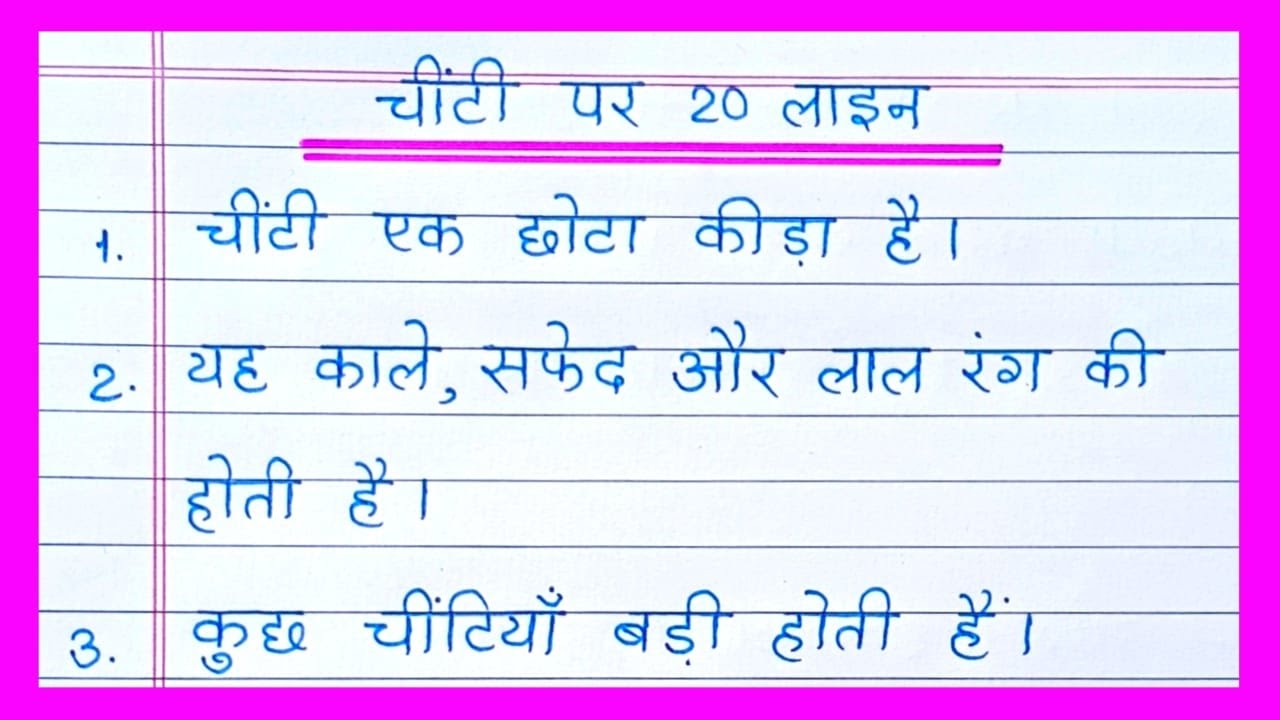 चींटी पर 20 लाइन
1. चींटी एक छोटा कीड़ा है।
2. यह काले, सफेद और लाल रंग की
होती है।
3. कुछ चींटियाँ बड़ी होती हैं।